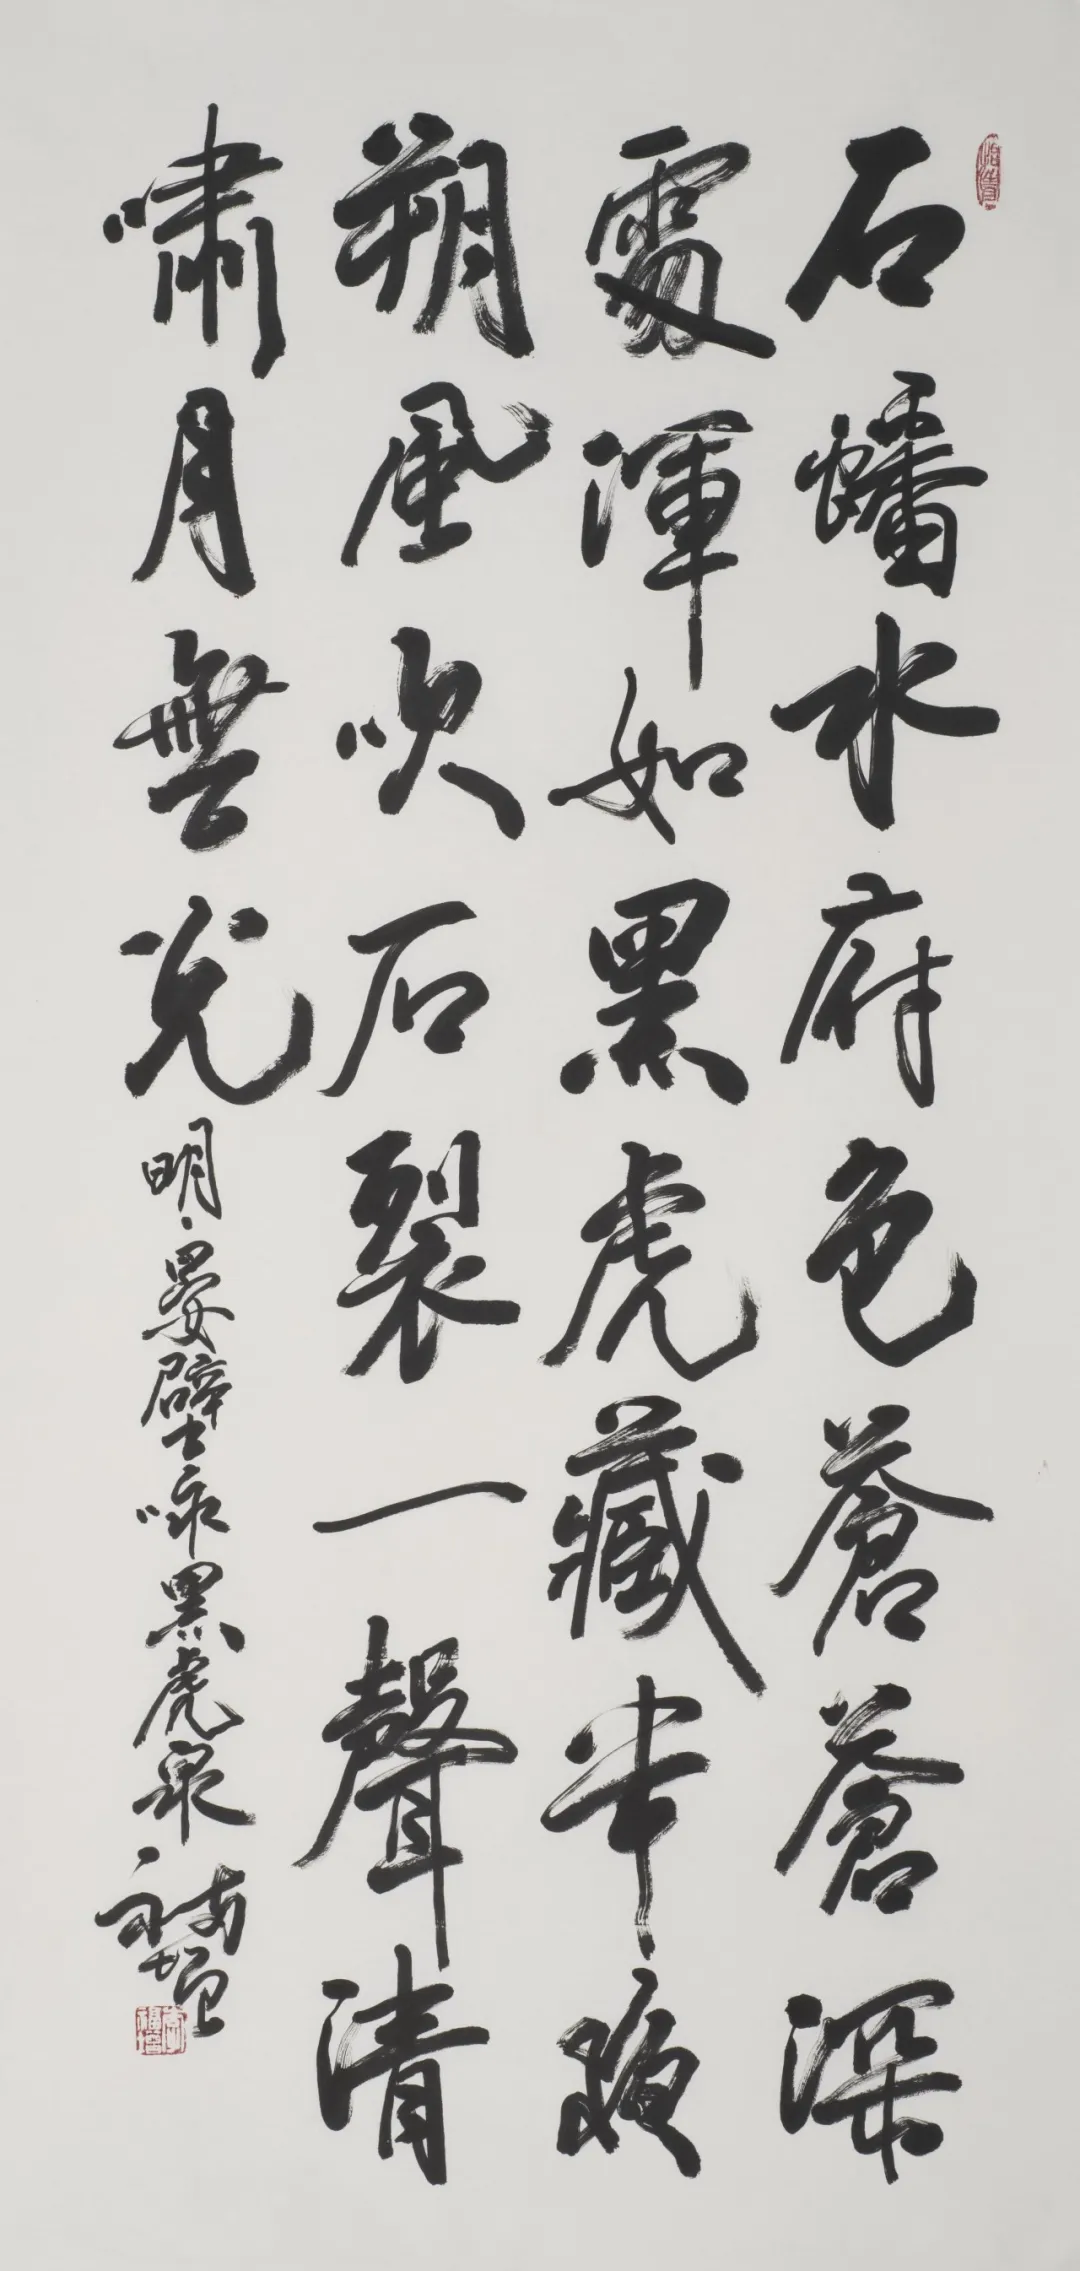 石蟠水府色蒼蒼深
處渾如黑虎藏半夜
朔風吹石裂一聲清
嘯月無光
明·晏壁咏黑虎泉